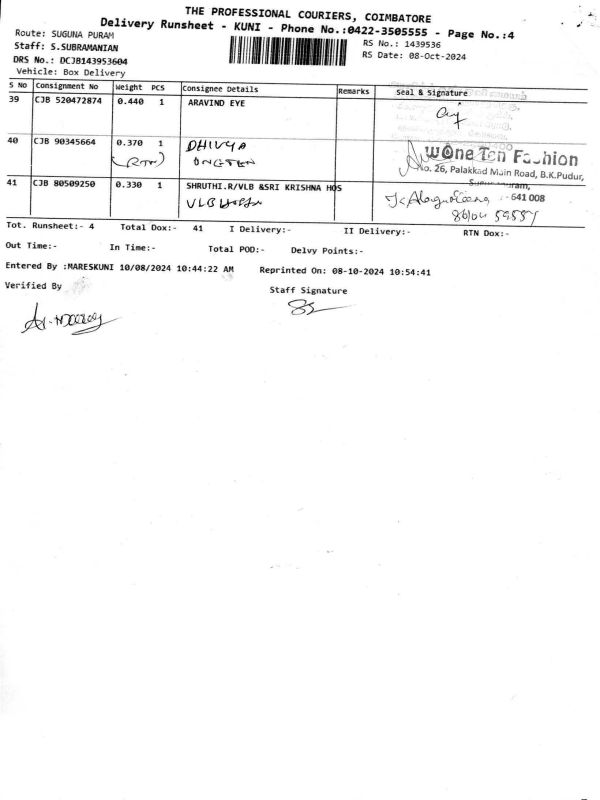 THE PROFESSIONAL COURIERS, COIMBATORE
Delivery Runsheet - KUNI - Phone No.:0422-3505555 - Page No.:4
Route: SUGUNA PURAM
RS No.: 1439536
Staff: S.SUBRAMANIAN
RS Date: 08-Oct-2024
DRS No.: DCJB143953604
Vehicle: Box Delivery
S No Consignment No Weight PCS Consignee Details Remarks Seal & Signature
39 CJB 520472874 0.440 1 ARAVIND EYE
40 CJB 90345664 0.370 1 DHIVYA
(RTN)
wOne Ten Fashion
No. 26, Palakkad Main Road, B.K.Pudur,
41 CJB 80509250 0.330 1 SHRUTHI.R/VLB &SRI KRISHNA HOS
- 641 008
VLB
Tot. Runsheet:- 4 Total Dox:- 41 I Delivery:- II Delivery:- RTN Dox:-
Out Time:- In Time:- Total POD:- Delvy Points:-
Entered By :MARESKUNI 10/08/2024 10:44:22 AM Reprinted On: 08-10-2024 10:54:41
Verified By
Staff Signature